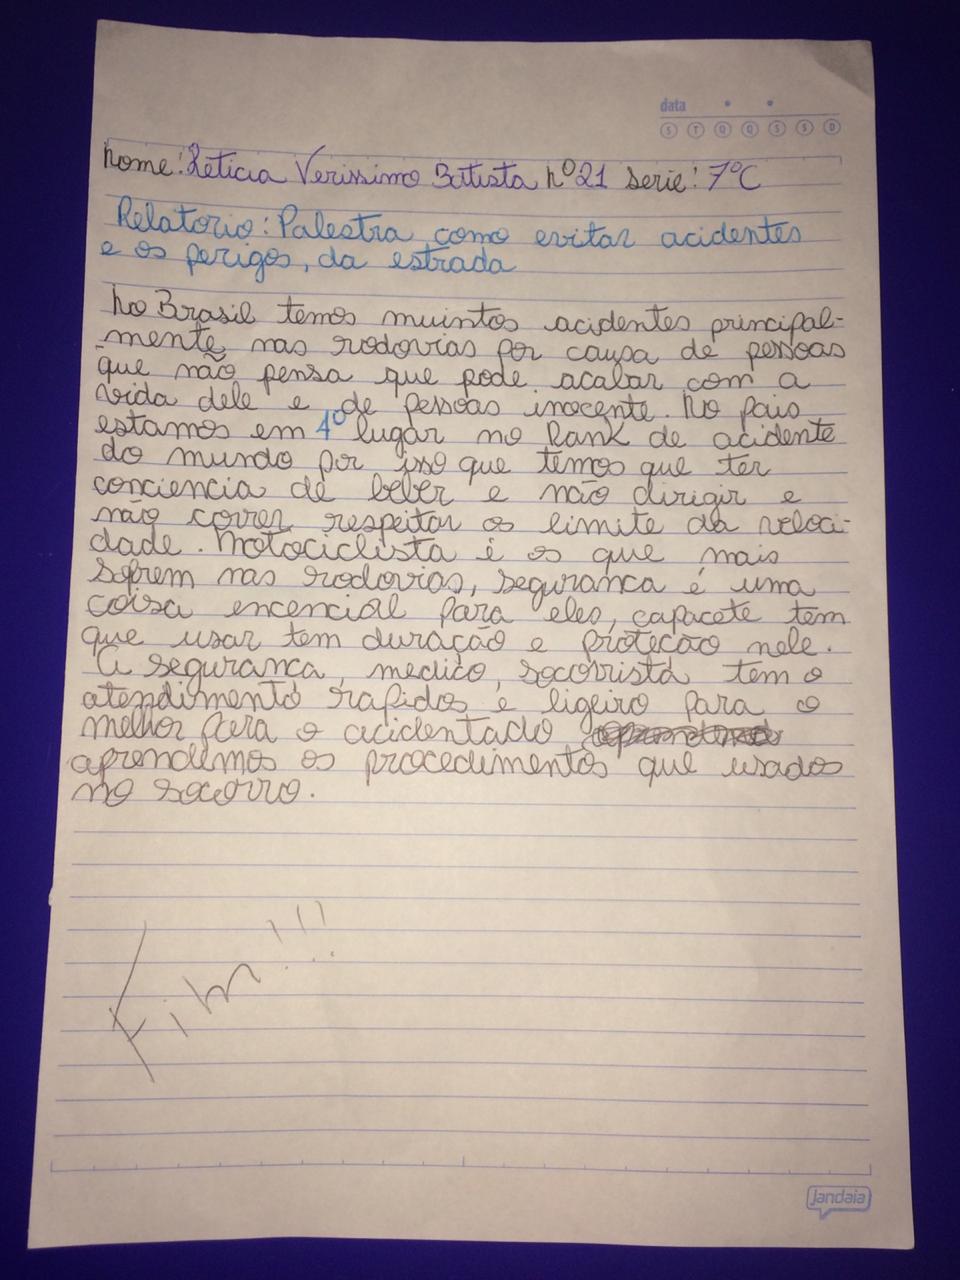 data
S T Q Q S S D
Nome: Leticia Verissimo Batista nº21 serie: 7ºC
Relatorio: Palestra como evitar acidentes
e os perigos, da estrada
No Brasil temos muintos acidentes principal-
mente nas rodovias por causa de pessoas
que não pensa que pode acabar com a
vida dele e de pessoas inocente. No pais
estamos em 4º lugar no Rank de acidente
do mundo por isso que temos que ter
conciencia de beber e não dirigir e
não correr respeitar os limite da veloci-
dade. Motociclista é os que mais
sofrem nas rodovias, seguranca é uma
coisa encencial para eles, capacete tem
que usar tem duração e proteção nele.
A seguranca, medico, socorrista tem o
atendimento rapidos e ligeiro para o
melhor para o acidentado
aprendemos os procedimentos que usados
no socorro.
Fim!!!
jandaia